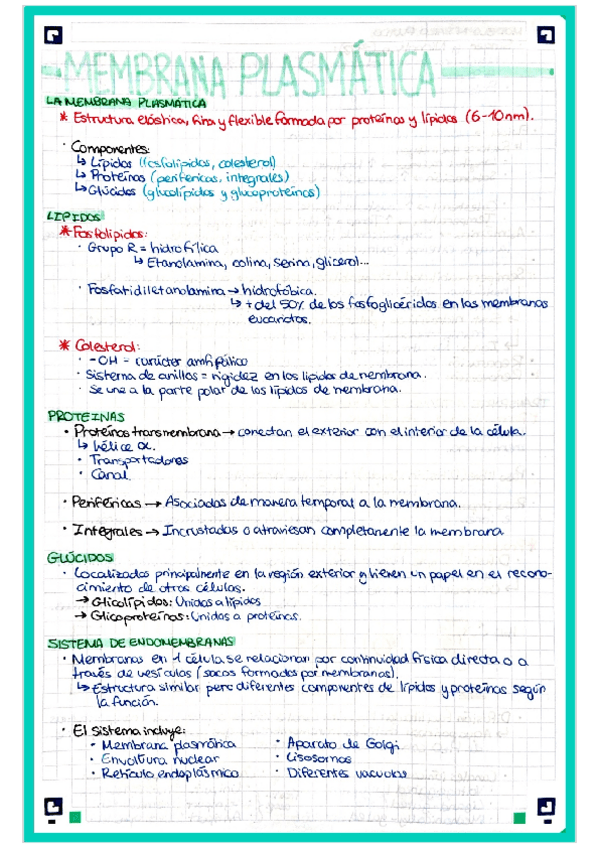 MEMBRANA PLASMÁTICA
LA MEMBRANA PLASMÁTICA
* Estructura elástica, fina y flexible formada por proteínas y lípidos (6-10nm).
· Componentes:
↳ Lípidos (fosfolípidos, colesterol)
↳ Proteínas (periféricas, integrales)
↳ Glúcidos (glucolípidos y glucoproteínas)
LÍPIDOS
* Fosfolípidos:
· Grupo R = hidrofílica
↳ Etanolamina, colina, serina, glicerol...
· Fosfatidiletanolamina → hidrofóbica.
↳ + del 50% de los fosfoglicéridos en las membranas
eucariotas.
* Colesterol:
· -OH - carácter amfipático
· Sistema de anillos = rigidez en los lípidos de membrana.
· Se une a la parte polar de los lípidos de membrana.
PROTEINAS
· Proteínas transmembrana → conectan el exterior con el interior de la célula.
↳ hélice α.
· Transportadores
· Canal.
· Periféricas → Asociadas de manera temporal a la membrana.
· Integrales → Incrustadas o atraviesan completamente la membrana
GLÚCIDOS
· Localizados principalmente en la región exterior y tienen un papel en el recono-
cimiento de otras células.
→ Glicolípidos: Unidos a lípidos
→ Glicoproteínas: Unidos a proteínas.
SISTEMA DE ENDOMEMBRANAS
· Membranas en 1 célula se relacionan por continuidad física directa o a
través de vesículas (sacos formados por membranas).
↳ Estructura similar pero diferentes componentes de lípidos y proteínas según
la función.
· El sistema incluye:
· Membrana plasmática · Aparato de Golgi
· Envoltura nuclear · Lisosomas
· Retículo endoplásmico · Diferentes vacuolas